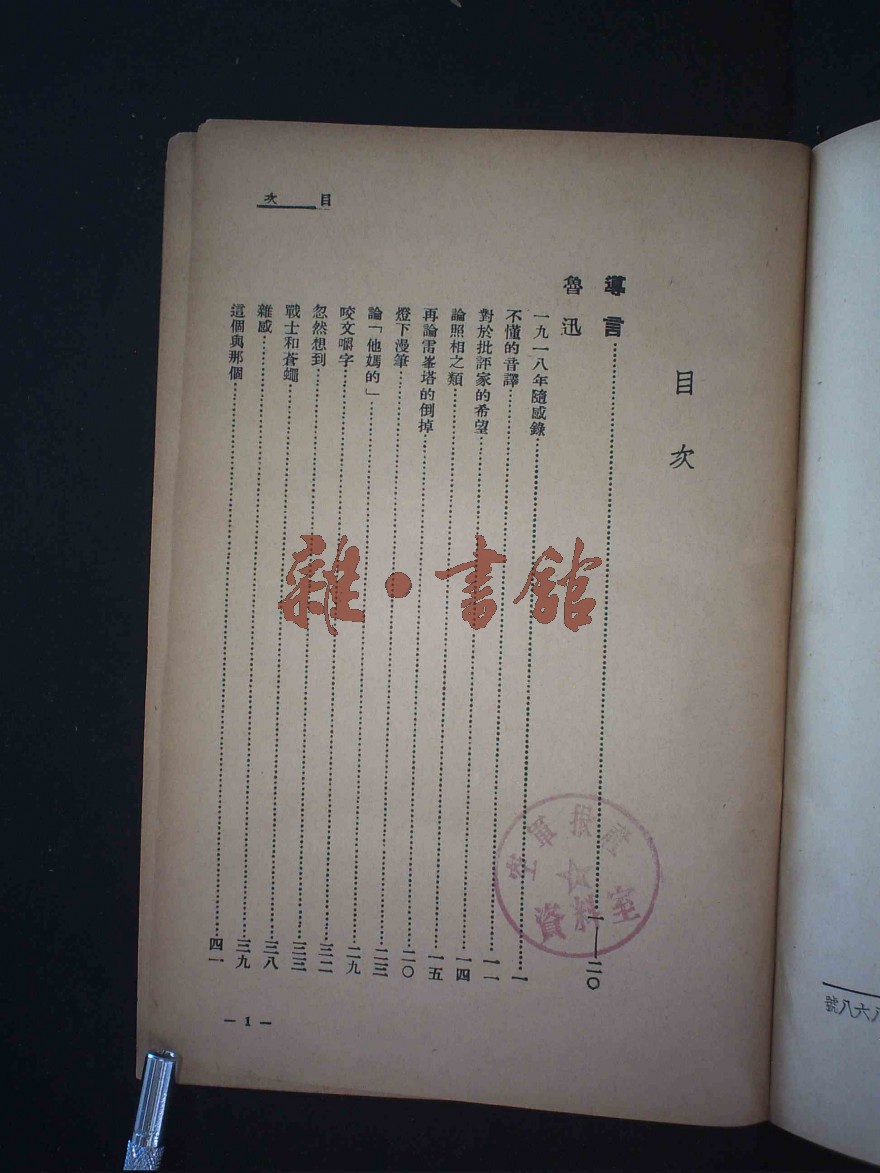 目次
目次
導言……一—二〇
魯迅
一九一八年隨感錄……一
不懂的音譯……一一
對於批評家的希望……一四
論照相之類……一五
再論雷峯塔的倒掉……二〇
燈下漫筆……二三
論「他媽的」……二九
咬文嚼字……三二
忽然想到……三三
戰士和蒼蠅……三八
雜感……三九
這個與那個……四一
— 1 —
雜·書館
空軍報社
資料室
六八號